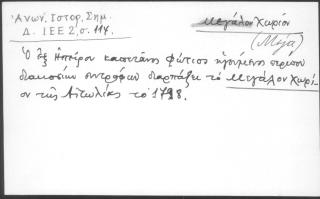 Ἀνων. Ἱστορ. Σημ.
Δ. ΙΕΕ 2, σ. 114.
Μεγάλον Χωρίον
(Μέγα)
Ὁ ἐξ Ἠπείρου καπετάνης Φώτιος ἡγούμενος περίπου
διακοσίων συντρόφων διαρπάζει τὸ Μεγάλον Χωρί-
ον τῆς Αἰτωλίας τὸ 1798.